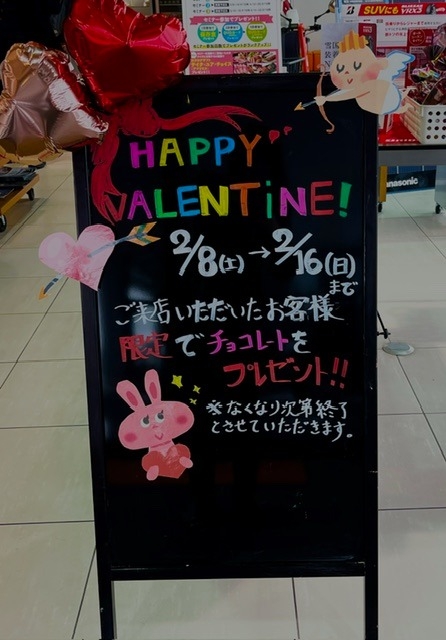 SUVにも
Panasonic
HAPPY
VALENTiNE!
2/8(土)→2/16(日)
まで
ご来店いただいたお客様
限定でチョコレートを
プレゼント!!
※なくなり次第終了
とさせていただきます。